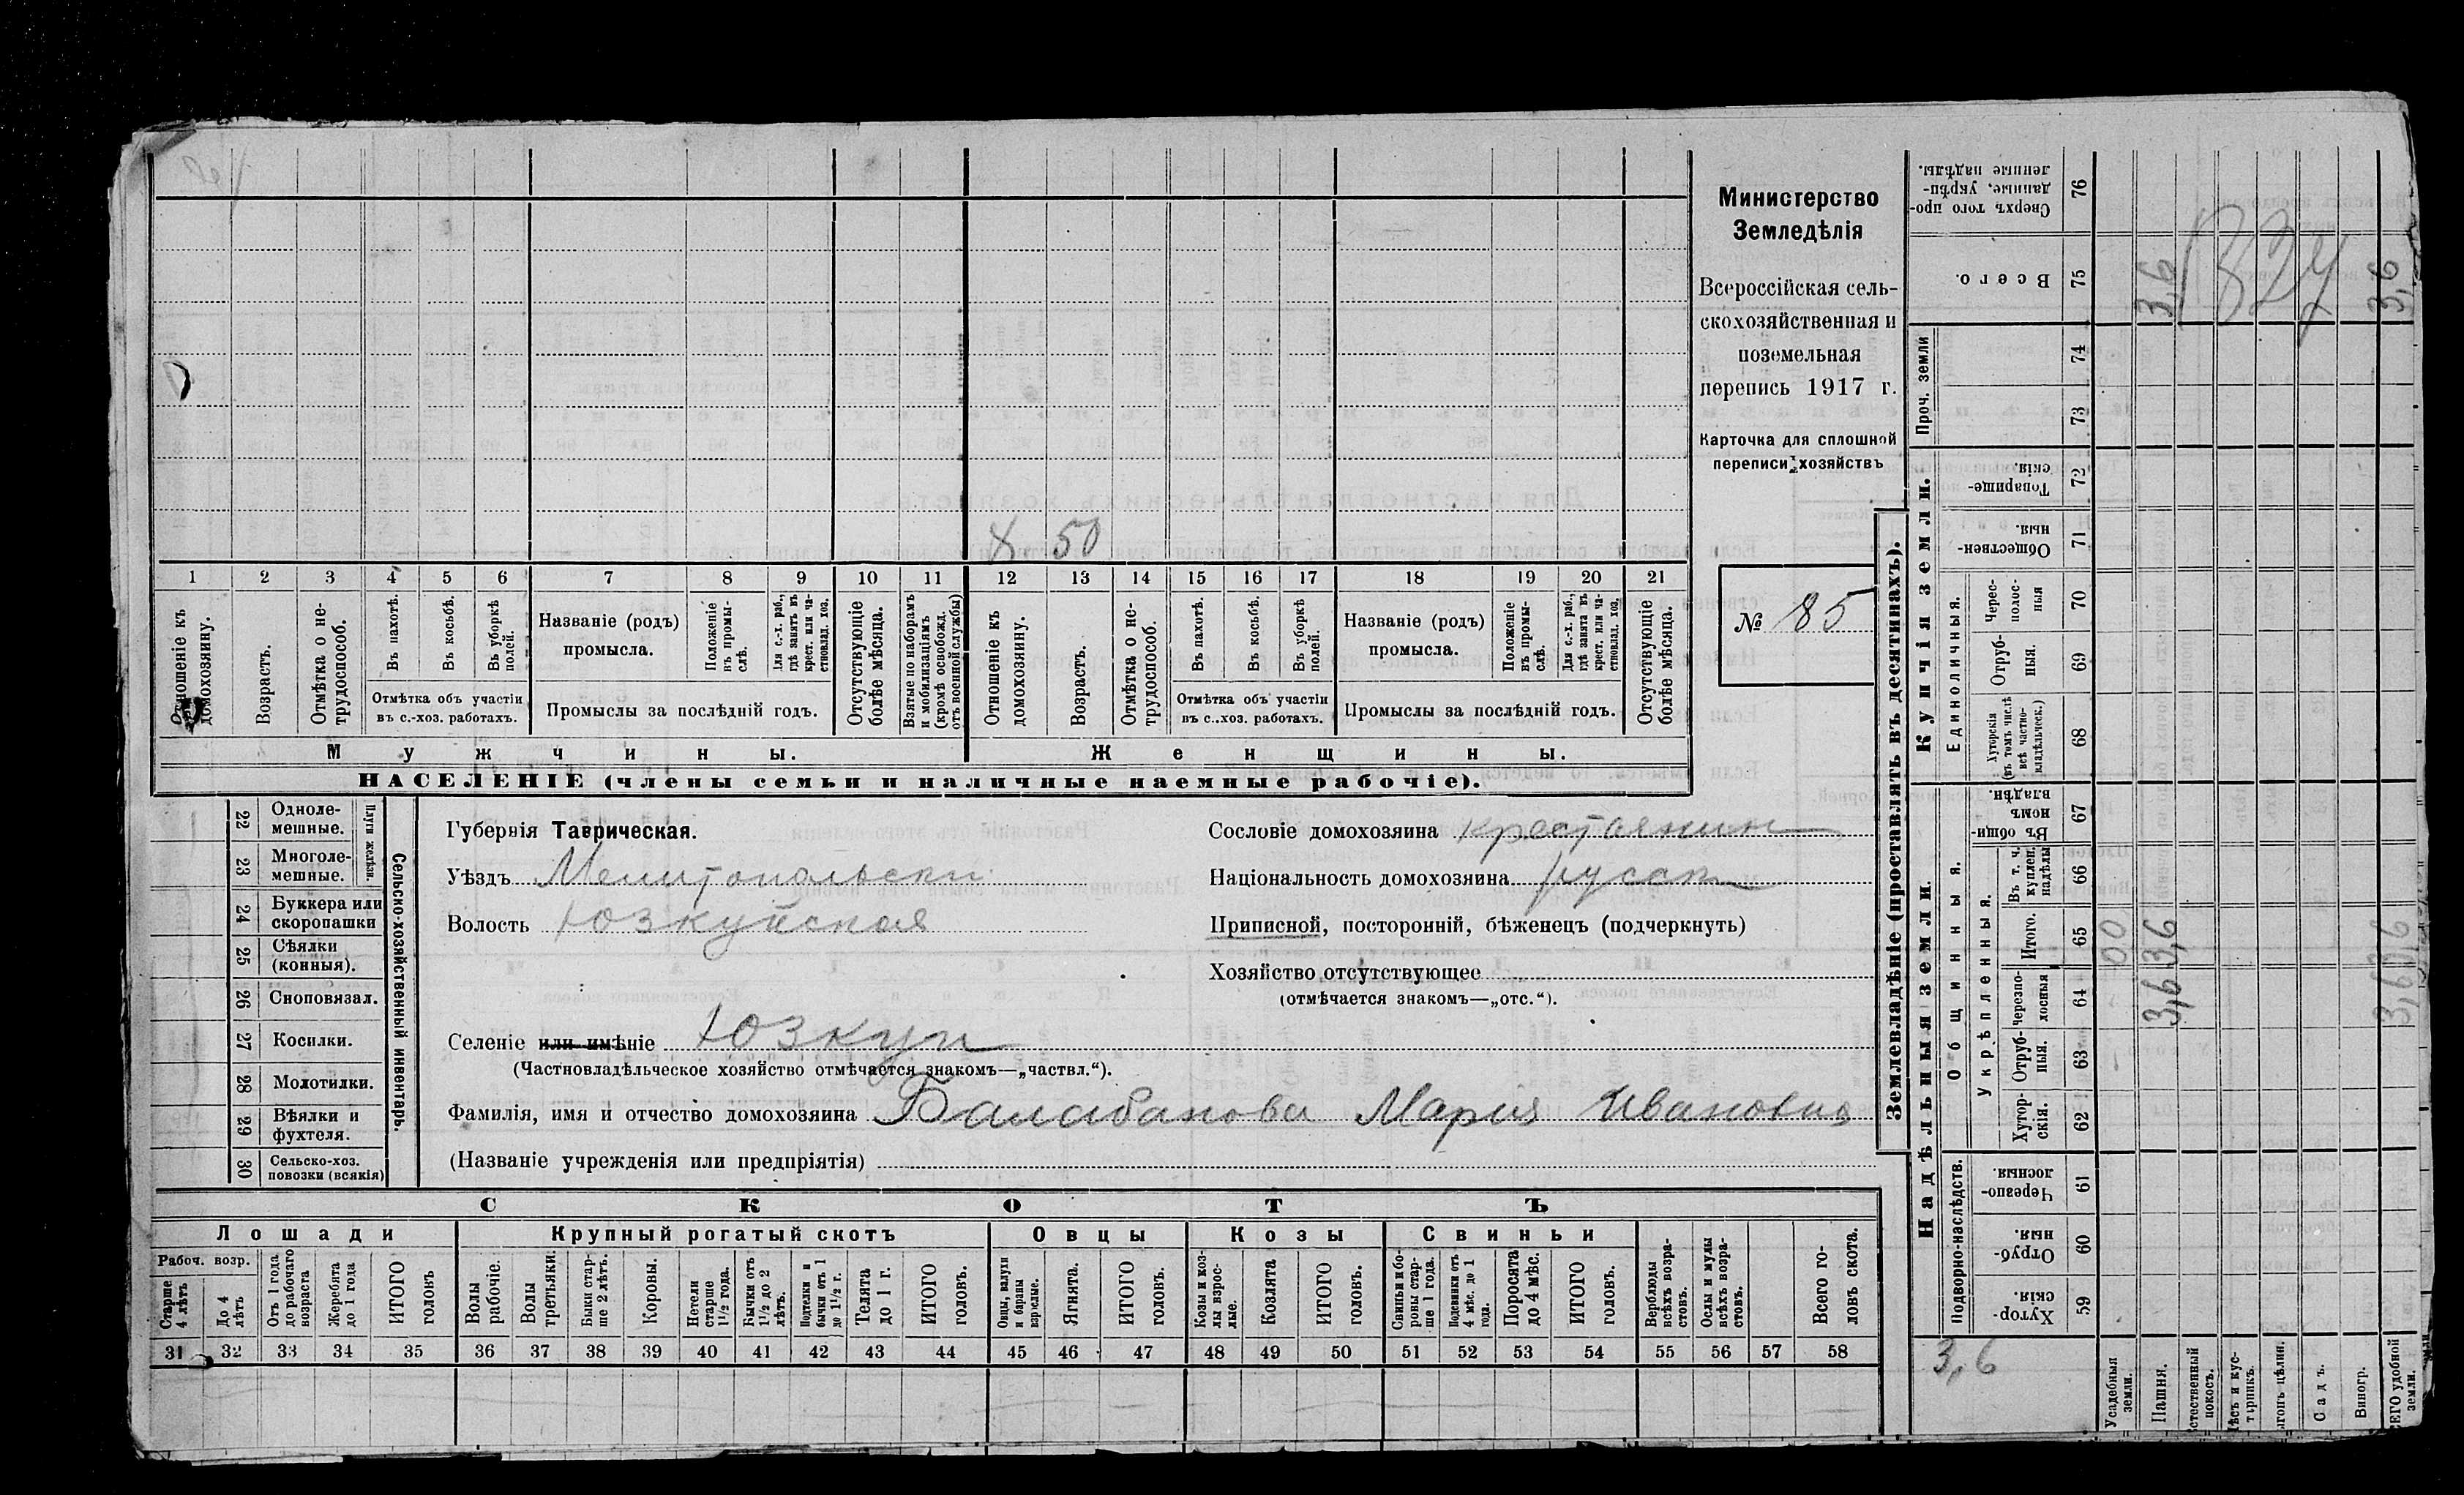 Министерство
Земледѣлія
Всероссійская сель-
скохозяйственная и
поземельная
перепись 1917 г.
Карточка для сплошной
переписи хозяйствъ
№ 85
X 50
1 2 3 4 5 6 7 8 9 10 11 12 13 14 15 16 17 18 19 20 21
Отношеніе къ домохозяину.
Возрастъ.
Отмѣтка о не-трудоспособ.
Въ пахотѣ.
Въ косьбѣ.
Въ уборкѣ полей.
Отмѣтка объ участіи
въ с.-хоз. работахъ.
Названіе (родъ)
промысла.
Положеніе въ промы-слѣ.
Для с.-х. раб., гдѣ занятъ въ крест. или ча-стновлад. хоз.
Промыслы за послѣдній годъ.
Отсутствующіе болѣе мѣсяца.
Взятые по наборамъ и мобилизаціямъ (кромѣ освобожд. отъ военной службы)
Отношеніе къ домохозяину.
Возрастъ.
Отмѣтка о не-трудоспособ.
Въ пахотѣ.
Въ косьбѣ.
Въ уборкѣ полей.
Отмѣтка объ участіи
въ с..хоз. работахъ.
Названіе (родъ)
промысла.
Положеніе въ промы-слѣ.
Для с.-х. раб., гдѣ занята въ крест. или ча-стновлад. хоз.
Промыслы за послѣдній годъ.
Отсутствующіе болѣе мѣсяца.
Мужчины.
Женщины.
НАСЕЛЕНІЕ (члены семьи и наличные наемные рабочіе).
22 Одноле-мешные.
23 Многоле-мешные.
Плуги желѣзн.
24 Буккера или скоропашки
25 Сѣялки (конныя).
26 Сноповязал.
27 Косилки.
28 Молотилки.
29 Вѣялки и фухтеля.
30 Сельско-хоз. повозки (всякія)
Сельско-хозяйственный инвентарь.
Губернія Таврическая.
Уѣздъ Мелитопольски
Волость Юзкуйская
Селеніе или имѣніе Юзкуи
(Частновладѣльческое хозяйство отмѣчается знакомъ—„частвл.“).
Фамилія, имя и отчество домохозяина Балабанова Марія Ивановна
(Названіе учрежденія или предпріятія)
Сословіе домохозяина крестьянин
Національность домохозяина русск
Приписной, посторонній, бѣженецъ (подчеркнуть)
Хозяйство отсутствующее
(отмѣчается знакомъ—„отс.“).
СКОТЪ
Лошади
Крупный рогатый скотъ
Овцы
Козы
Свиньи
Рабоч. возр.
Старше 4 лѣтъ
До 4 лѣтъ
Отъ 1 года до рабочаго возраста
Жеребята до 1 года
ИТОГО головъ
Волы рабочіе.
Волы третьяки.
Быки стар-ше 2 лѣтъ.
Коровы.
Нетели старше 1½ года.
Бычки отъ 1½ до 2 лѣтъ.
Подтелки и бычки отъ 1 до 1½ г.
Телята до 1 г.
ИТОГО головъ.
Овцы, валухи и бараны взрослые.
Ягнята.
ИТОГО головъ.
Козы и коз-лы взрос-лые.
Козлята
ИТОГО головъ.
Свиньи и бо-ровы стар-ше 1 года.
Подсвинки отъ 4 мѣс. до 1 года.
Поросята до 4 мѣс.
ИТОГО головъ.
Верблюды всѣхъ возра-стовъ.
Ослы и мулы всѣхъ возра-стовъ.
Всего го-ловъ скота.
31 32 33 34 35 36 37 38 39 40 41 42 43 44 45 46 47 48 49 50 51 52 53 54 55 56 57 58
Землевладѣніе (проставлять въ десятинахъ).
Купчія земли.
Надѣльныя земли.
Сверхъ того про-данные, укрѣп-ленные надѣлы. 76
Всего. 75 3,6 3,6
827
Проч. земли
74
73
Товарище-скія. 72
Обществен-ныя. 71
Единоличныя.
Черес-полос-ныя 70
Отруб-ныя. 69
Хуторскія (въ томъ числѣ всѣ частно-владѣльческ.) 68
Общинныя.
Въ общи-номъ владѣн. 67
Укрѣпленныя.
Въ т. ч. куплен. надѣлы 66
Итого. 65 00 3,6 3,6
Черезпо-лосныя 64 3,6 3,6
Отруб-ныя. 63
Хутор-скія. 62
Подворно-наслѣдств.
Черезпо-лосныя. 61
Отруб-ныя. 60
Хутор-скія. 59
3,6
Усадебныя земли.
Пашня.
Садъ.
Виногр.